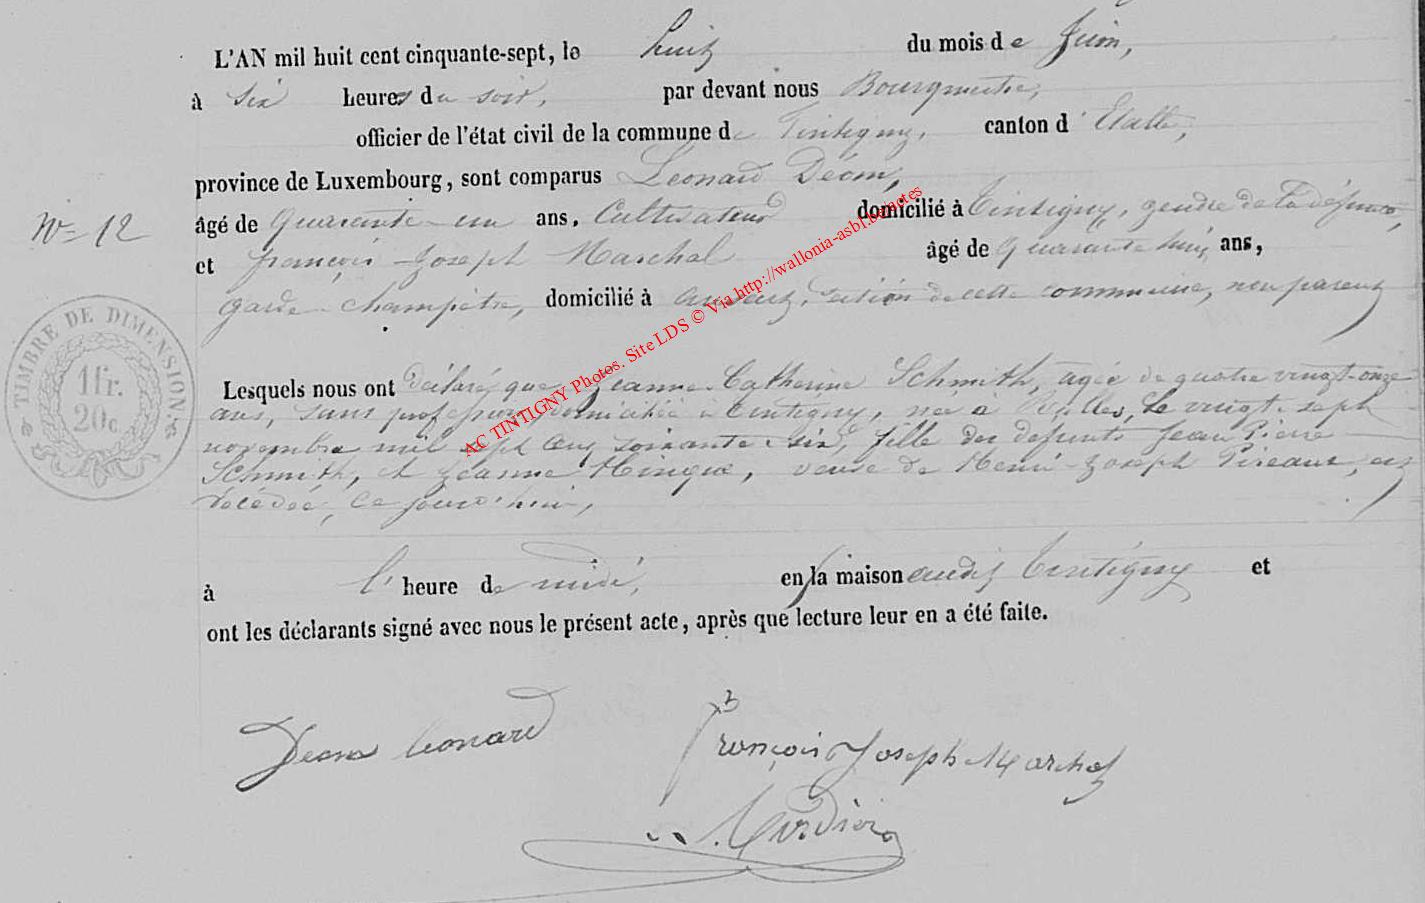 L'AN mil huit cent cinquante-sept, le huit du mois de Juin,
à six heures du soir, par devant nous Bourgmestre,
officier de l'état civil de la commune de Tintigny, canton d'Etalle,
province de Luxembourg, sont comparus Leonard Déom,
N° 12
âgé de quarante-un ans, Cultivateur domicilié à Tintigny, gendre de la défunte,
et françois-Joseph Marchal âgé de quarante huit ans,
garde-champêtre, domicilié à section de cette commune, non parent
Lesquels nous ont déclaré que Jeanne-Catherine Schmith, agée de quatre vingt-onze
ans, sans profession, domiciliée à Tintigny, née à le vingt-sept
novembre mil sept cent soixante-six, fille des defunts Jean Pierre
Schmith, et Jeanne veuve de Henri-Joseph est
décédée, ce jourd'hui,
à l'heure de midi, en la maison audit Tintigny et
ont les déclarants signé avec nous le présent acte, après que lecture leur en a été faite.
TIMBRE DE DIMENSION
1 fr.
20c.
AC TINTIGNY Photos. Site LDS © Via http://wallonia-asbl.be/actes
Deom leonard
françois Joseph Marchal